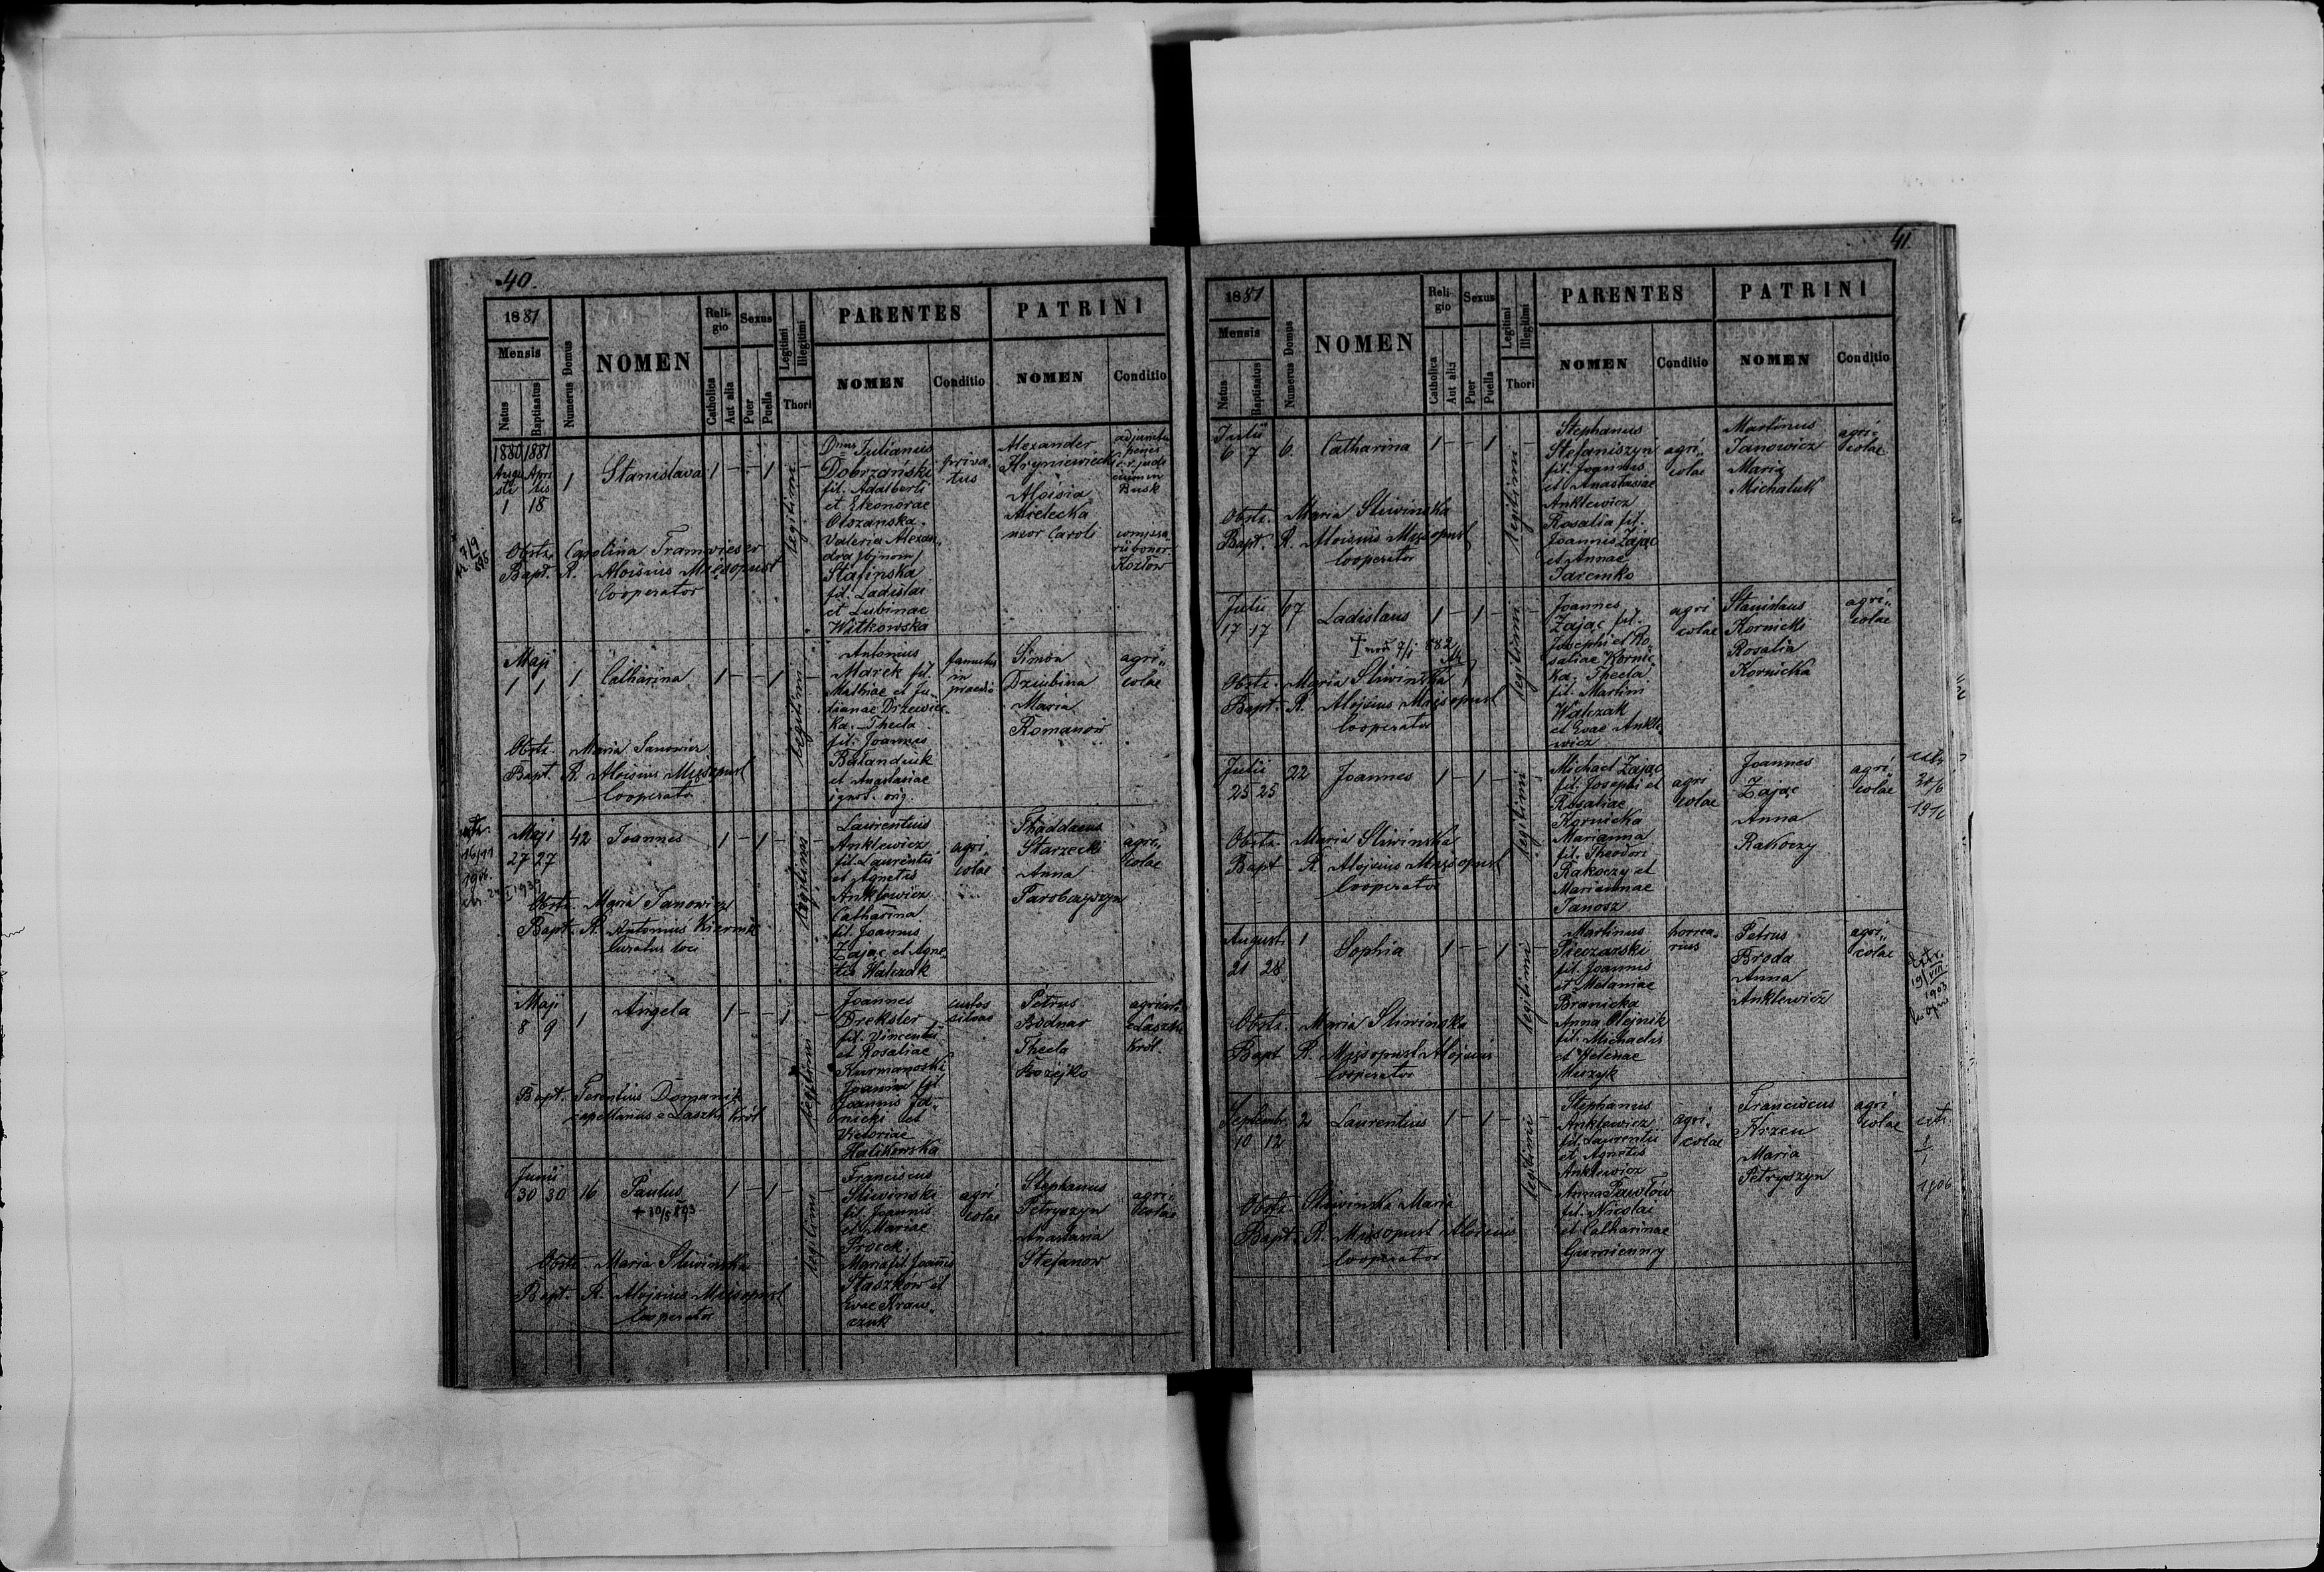 40.
1881
Mensis
Natus
Baptisatus
Numerus Domus
NOMEN
Religio
Catholica
Aut alia
Sexus
Puer
Puella
Legitimi
Illegitimi
Thori
PARENTES
NOMEN
Conditio
PATRINI
NOMEN
Conditio
1880 1881
Augu Apri
sti lis
1 18
1
Stanislava
1 - - 1 -
legitimi
Dnus Julianus
Dobrzański
fil. Adalberti
et Eleonorae
Olszańska
Valeria Alexan
dra
fil. Ladislai
et Lubinae
Witkowska
priva-
tus
Alexander
Hryniewiecki
Aloisia
Mielecka
uxor Caroli
Busk
Kozłow
Obste. Carolina
Bapt. R. Aloisius Mięsopust
Cooperator
Maji
1 1 1 Catharina 1 - - 1 -
legitimi
Antonius
Marek fil.
Mathiae et Ju-
lianae Drzewiec
ka. Thecla
fil. Joannes
Bałanduk
et Anastasiae
ignot. orig.
famulus
in
praedio
Simon
Dziubina
Maria
Romanow
agri-
colae
Obste. Maria Janowicz
Bapt. R. Aloisius Mięsopust
Cooperator
16/11
Maji
27 27 42 Joannes 1 - 1 - -
legitimi
Laurentius
Anklewicz
fil. Laurentii
et Agnetis
Anklewicz
Catharina
fil. Joannis
Zając et Agne-
tis Walczak
agri
colae
Thaddaeus
Starzecki
Anna
Parobczyszyn
agri-
colae
Obste. Maria Janowicz
Bapt. R. Antonius
Curatus loci
Maji
8 9 1 Angela 1 - - 1 -
legitimi
Joannes
Drekster
fil. Vincentii
et Rosaliae
Joanna fil
Joannis
nicki et
Victoriae
Halikowska
custos
silvae
Petrus
Bodnar
Thecla
Bożejko
agricolae
e Laszki
Król.
Bapt. Terentius Domanik
capellanus e Laszki Król
Junii
30 30 16 Paulus 1 - 1 - -
+ 30/5 893
legitimi
Franciscus
Śliwinski
fil. Joannis
et Mariae
Procek
Maria fil. Joannis
Staszkow et
Evae Kraw-
czuk
agri
colae
Stephanus
Petryszyn
Anastasia
Stefanow
agri-
colae
Obste. Maria Śliwinska
Bapt. R. Alojsius Mięsopust
Cooperator
41.
1881
Mensis
Natus
Baptisatus
Numerus Domus
NOMEN
Religio
Catholica
Aut alia
Sexus
Puer
Puella
Legitimi
Illegitimi
Thori
PARENTES
NOMEN
Conditio
PATRINI
NOMEN
Conditio
Julii
6 7 6 Catharina 1 - - 1 -
legitimi
Stephanus
Stefaniszyn
fil. Joannis
et Anastasiae
Anklewicz
Rosalia fil.
Joannis Zając
et Annae
Jaremko
agri-
colae
Martinus
Janowicz
Maria
Michaluk
agri-
colae
Obste. Maria Śliwinska
Bapt. R. Aloisius Mięsopust
Cooperator
Julii
17 17 67 Ladislaus 1 - 1 - -
legitimi
Joannes
Zając fil.
Josephi et Ro-
saliae Kornic-
ka. Thecla
fil. Martini
Walczak
et Evae Ankle-
wicz
agri
colae
Stanislaus
Kornicki
Rosalia
Kornicka
agri-
colae
Obste. Maria Śliwinska
Bapt. R. Alojsius Mięsopust
Cooperator
Julii
25 25 22 Joannes 1 - 1 - -
legitimi
Michael Zając
fil. Josephi et
Rosaliae
Kornicka
Marianna
fil. Theodori
Rakoczy et
Mariannae
Janosz
agri
colae
Joannes
Zając
Anna
Rakoczy
agri-
colae
Obste. Maria Śliwinska
Bapt. R. Alojsius Mięsopust
Cooperator
Augusti
21 28 1 Sophia 1 - - 1 -
legitimi
Martinus
Pieczarski
fil. Joannis
et Melaniae
Branicka
Anna Olejnik
fil. Michaelis
et Helenae
Muzyk
horrea-
rius
Petrus
Broda
Anna
Anklewicz
agri-
colae
Extr.
19/VIII
1903
Obste. Maria Śliwinska
Bapt. R. Mięsopust Alojsius
Cooperator
Septembr.
10 12 2 Laurentius 1 - 1 - -
legitimi
Stephanus
Anklewicz
fil. Laurentii
et Agnetis
Anklewicz
Anna Pawłow
fil. Nicolai
et Catharinae
Gumienny
agri-
colae
Franciscus
Krzen
Maria
Petryszyn
agri
colae
1906
Obste. Śliwinska Maria
Bapt. R. Mięsopust Aloisius
Cooperator